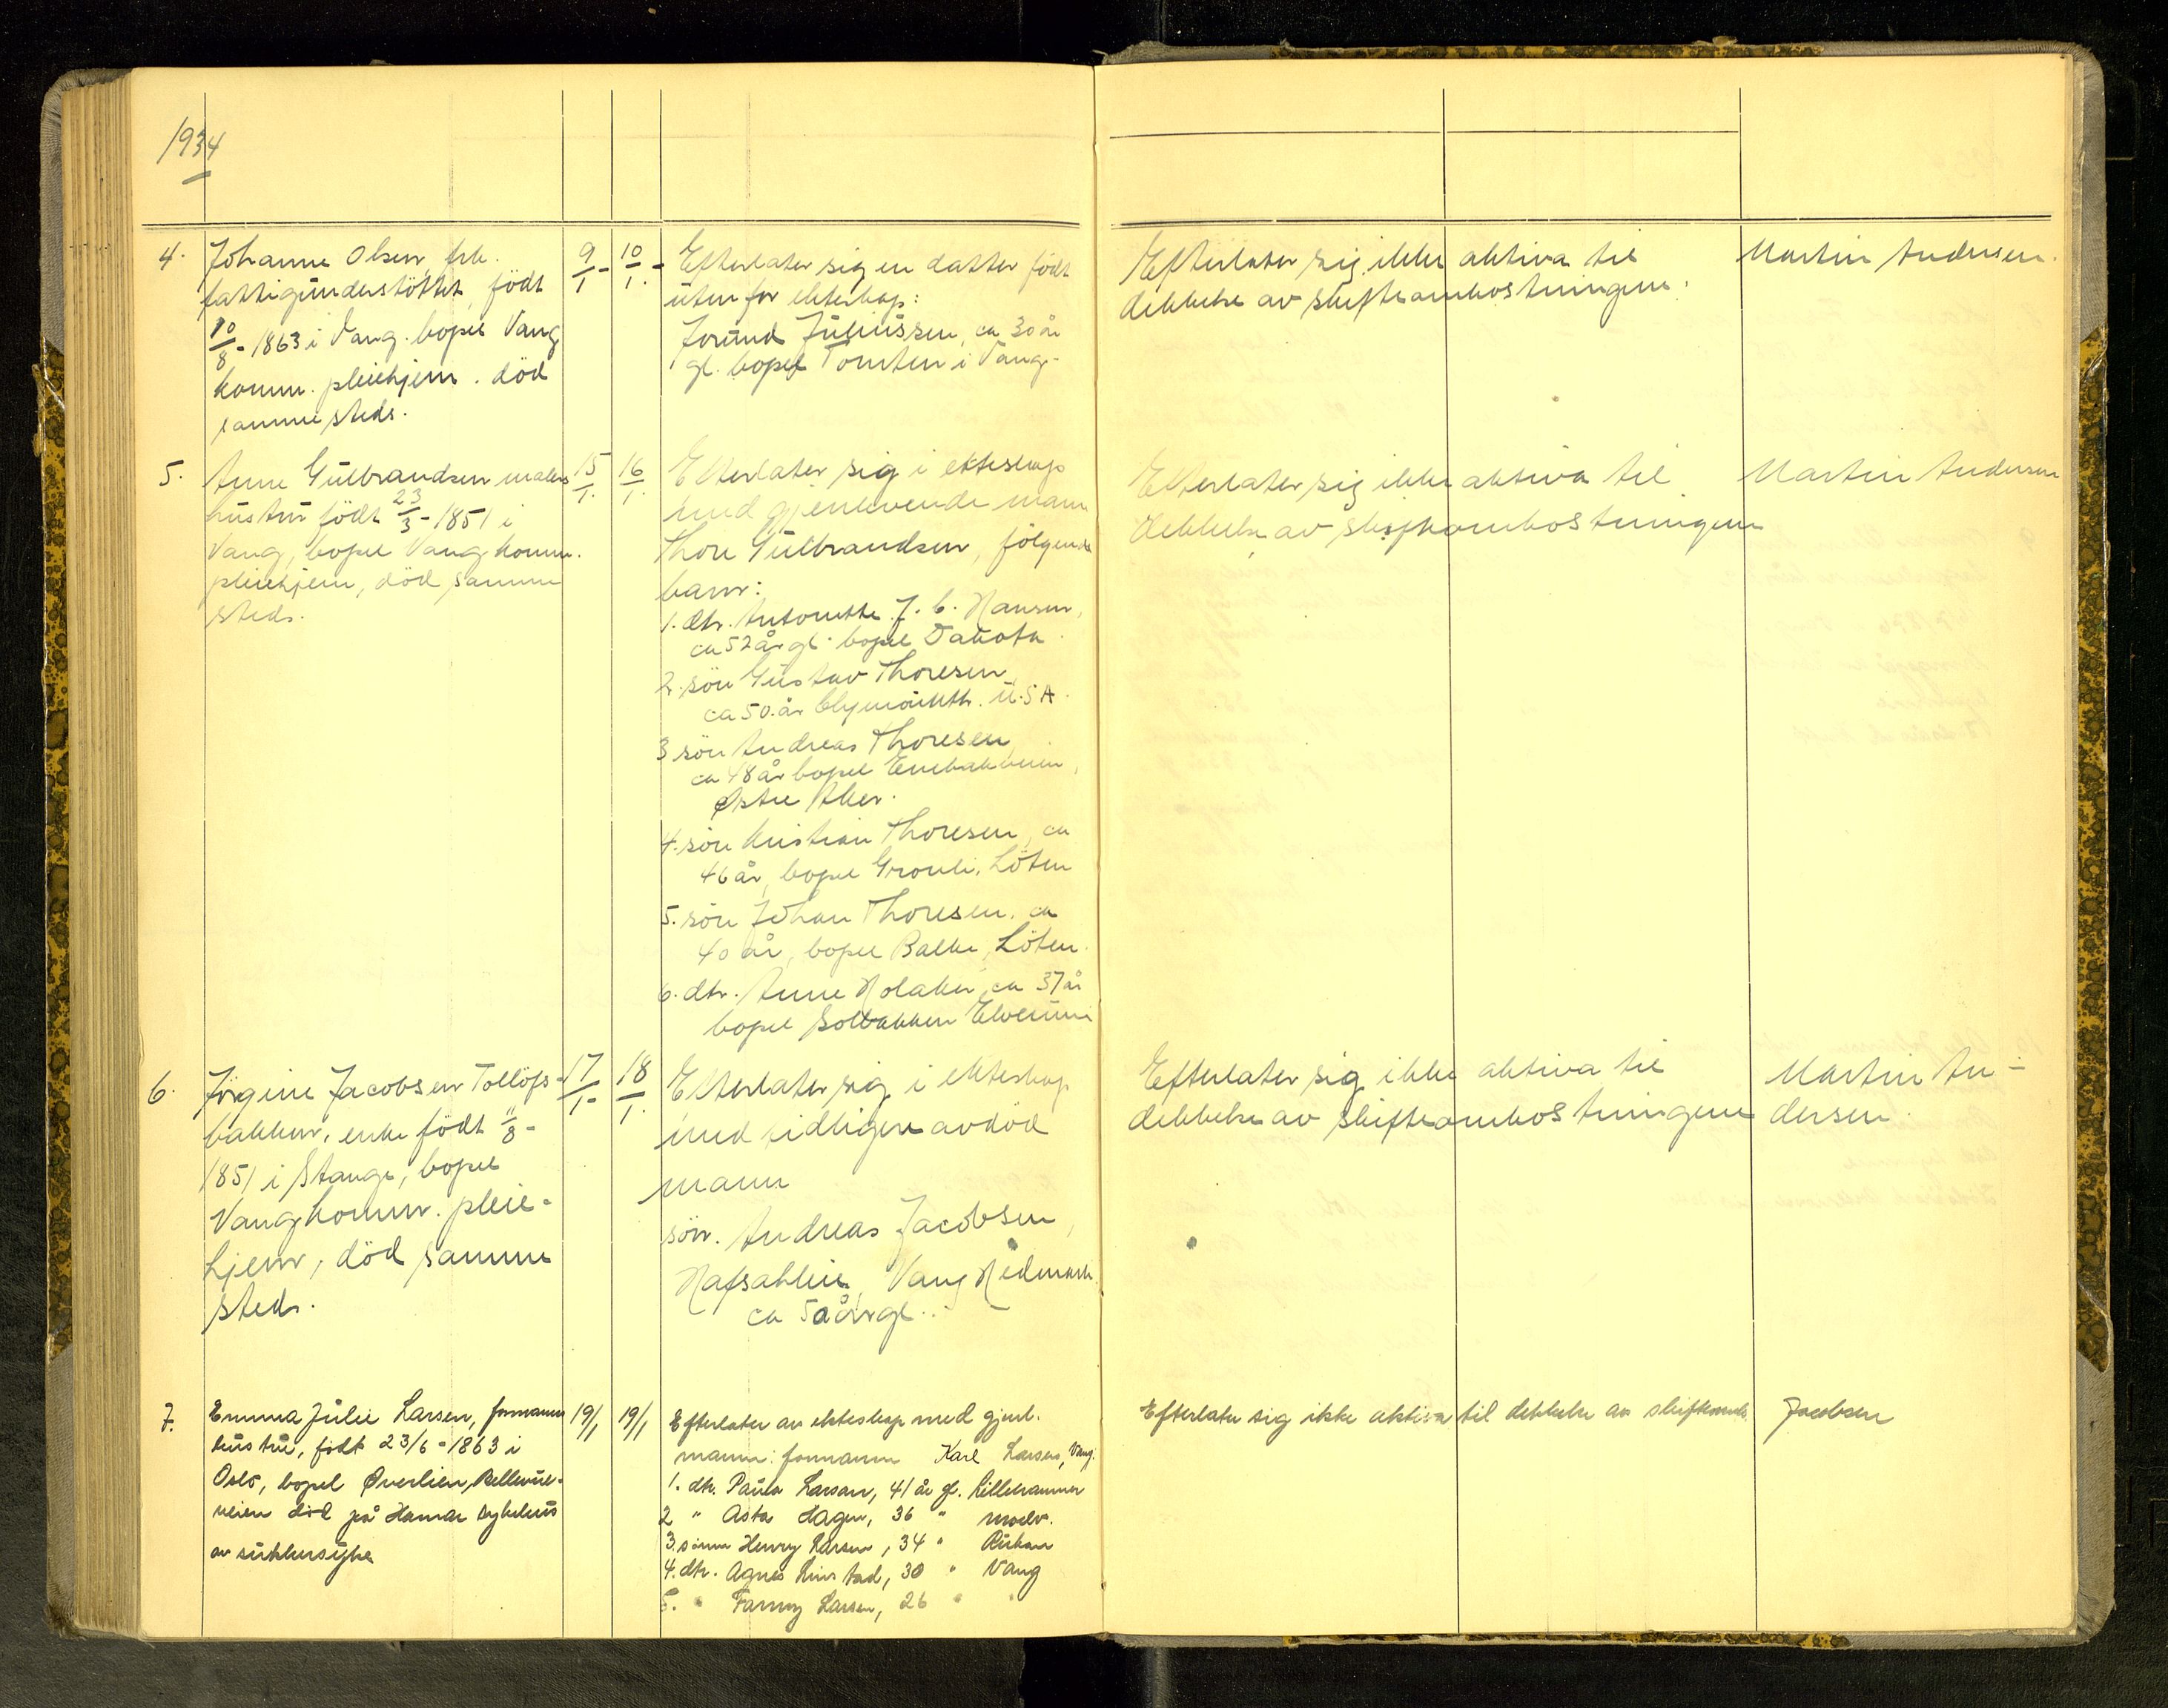 1934
4. Johanne Olsen, frk.
fattigunderstöttet, födt
10/8 - 1863 i Vang. bopel Vang
komm. pleiehjem. död
samme steds.
9/1 - 10/1 -
Efterlater sig en datter födt
uten for ekteskap:
Jorund Juliussen, ca 30 år
gl. bopel Tomten i Vang.
Efterlater sig ikke aktiva til
dekkelse av skifteomkostningene.
Martin Andersen.
5. Anne Gulbrandsen malers
hustru födt 23/3 - 1851 i
Vang, bopel Vang komm.
pleiehjem, död samme
steds.
15/1. 16/1.
Efterlater sig i ekteskap
med gjenlevende mann
Thore Gulbrandsen, følgende
barn:
1. dtr. Antonette J. C. Hansen,
ca 52 år gl. bopel Dakota.
2. sön Gustav Thoresen,
ca 50. år U.S.A.
3 sön Andreas Thoresen,
ca 48 år bopel Enebakveien,
Østre Aker.
4. sön Kristian Thoresen, ca
46 år, bopel Grouli, Löten
5. sön Johan Thoresen, ca
40 år, bopel Balke, Löten.
6. dtr. Anne Holaker, ca 37 år
bopel Solbakken Elverum
Efterlater sig ikke aktiva til
dekkelse av skifteomkostningene
Martin Andersen
6. Jörgine Jacobsen Tollöfs-
bakken, enke födt 11/8 -
1851 i Stange, bopel
Vang komm. pleie-
hjem, död samme
steds.
17/1 - 18/1.
Efterlater sig i ekteskap
med tidligere avdöd
mann
sön. Andreas Jacobsen,
Hafsahlie, Vang Hedmark.
ca 50 år gl.
Efterlater sig ikke aktiva til
dekkelse av skifteomkostningene
Martin An-
dersen.
7. Emma Julie Larsen, formanns
hustru, födt 23/6 - 1863 i
Oslo, bopel Øverlien, Bellevue-
veien död på Hamar sykehus
av sukkersyke
19/1 19/1
Efterlater av ekteskap med gjenl.
mann: formann Karl Larsen, Vang.
1. dtr. Paula Larsen, 41 år gl. Lillehammer
2 " Asta Hagen, 36 " Moelv.
3. sönn Henry Larsen, 34 " Rukan
4. dtr. Agnes Rinstad, 30 " Vang
5. " Fanny Larsen, 26 " "
Efterlater sig ikke aktiva til dekkelse av skifteomk.
Jacobsen